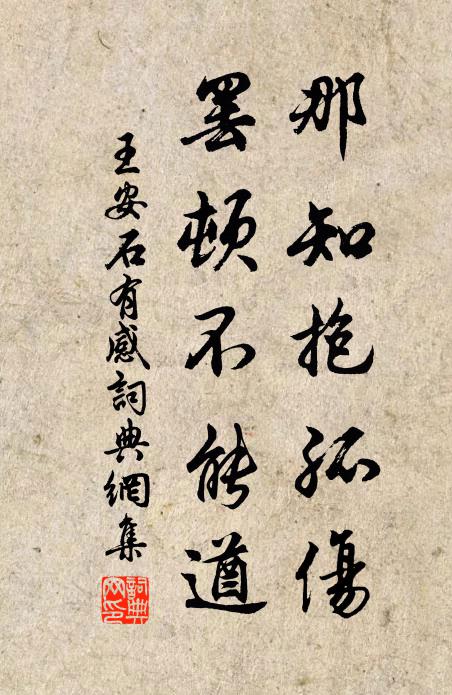 那知抱孤傷
罢頓不能遒
王安石有感詞典網集
詞典
网印